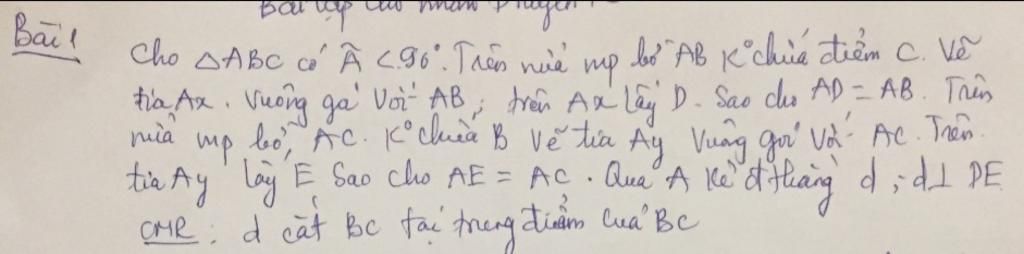 Bài tập cho
Bài 1
Cho △ABC có Â < 90°. Trên nửa mp bờ AB K° chứa điểm C. Vẽ
tia Ax. Vuông góc Với AB; trên Ax lấy D. Sao cho AD = AB. Trên
nửa mp bờ, AC. K° chứa B Vẽ tia Ay Vuông gói Với AC. Trên.
tia Ay lấy E Sao cho AE = AC. Qua A Kẻ đ thẳng d; d⊥ DE
CMR: d cắt BC tại trung điểm của BC